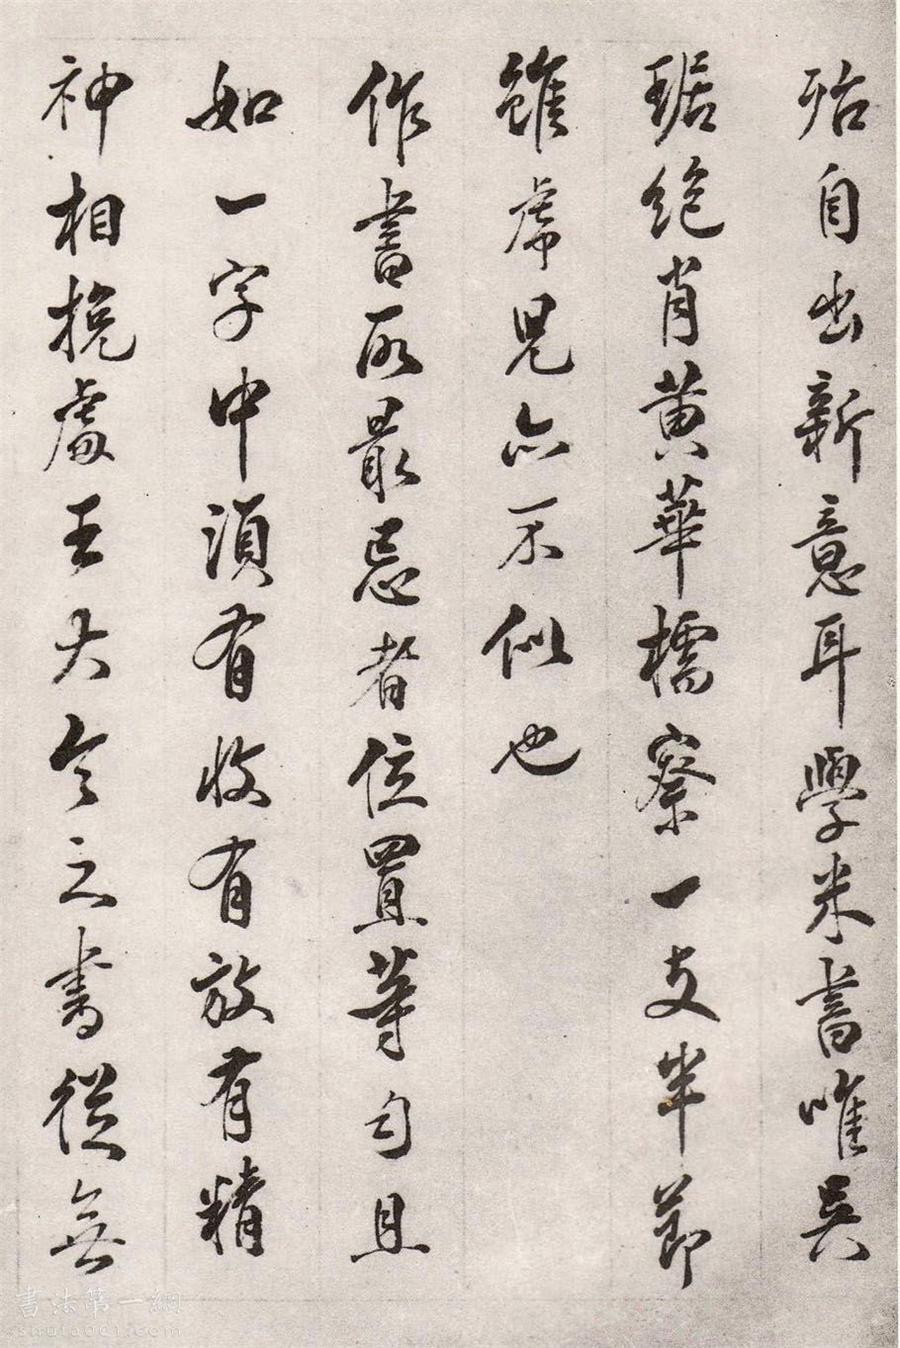 殆自出新意耳學米書唯吳
琚絕肖黃華樗寮一支半節
雖虎兒亦不似也
作書所最忌者位置等勻且
如一字中須有收有放有精
神相挽處王大令之書從無
書法第一網
shufa001.com